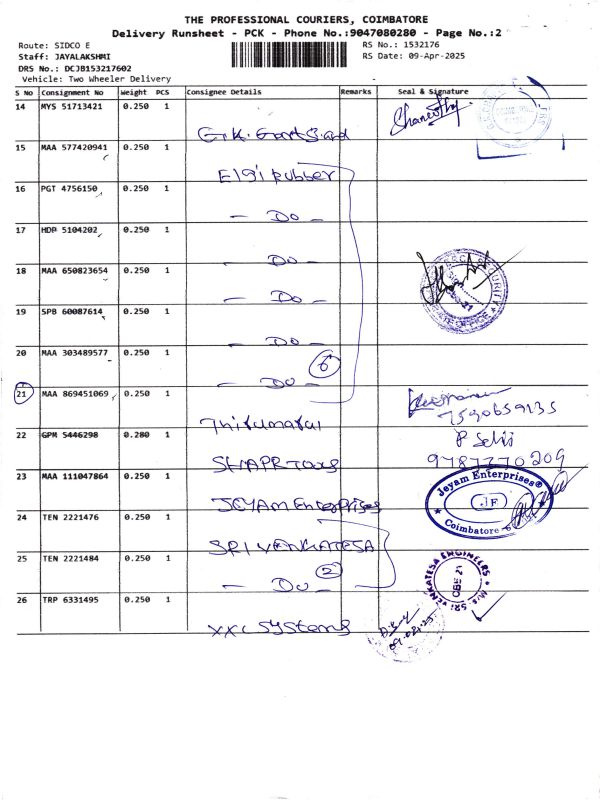 THE PROFESSIONAL COURIERS, COIMBATORE
Delivery Runsheet - PCK - Phone No.:9047080280 - Page No.:2
Route: SIDCO E
Staff: JAYALAKSHMI
DRS No.: DCJB153217602
Vehicle: Two Wheeler Delivery
RS No.: 1532176
RS Date: 09-Apr-2025
S No Consignment No Weight PCS Consignee Details Remarks Seal & Signature
14 MYS 51713421 0.250 1
15 MAA 577420941 0.250 1 Elgi Rubber
16 PGT 4756150 0.250 1 - Do -
17 HDP 5104202 0.250 1 - Do -
18 MAA 650823654 0.250 1 - Do -
19 SPB 60087614 0.250 1 - Do -
20 MAA 303489577 0.250 1 - Do - 6
21 MAA 869451069 0.250 1 Thirumalai
7590659135
22 GPM 5446298 0.280 1
P Selvi
9787770209
23 MAA 111047864 0.250 1 JEYAM Enterprises
Jeyam Enterprises®
JF
Coimbatore
24 TEN 2221476 0.250 1 SRI VENKATESA
25 TEN 2221484 0.250 1 - Do - 2
M/s. SRI VENKATESA ENGINEERS
CBE 21
26 TRP 6331495 0.250 1 XXL Systems